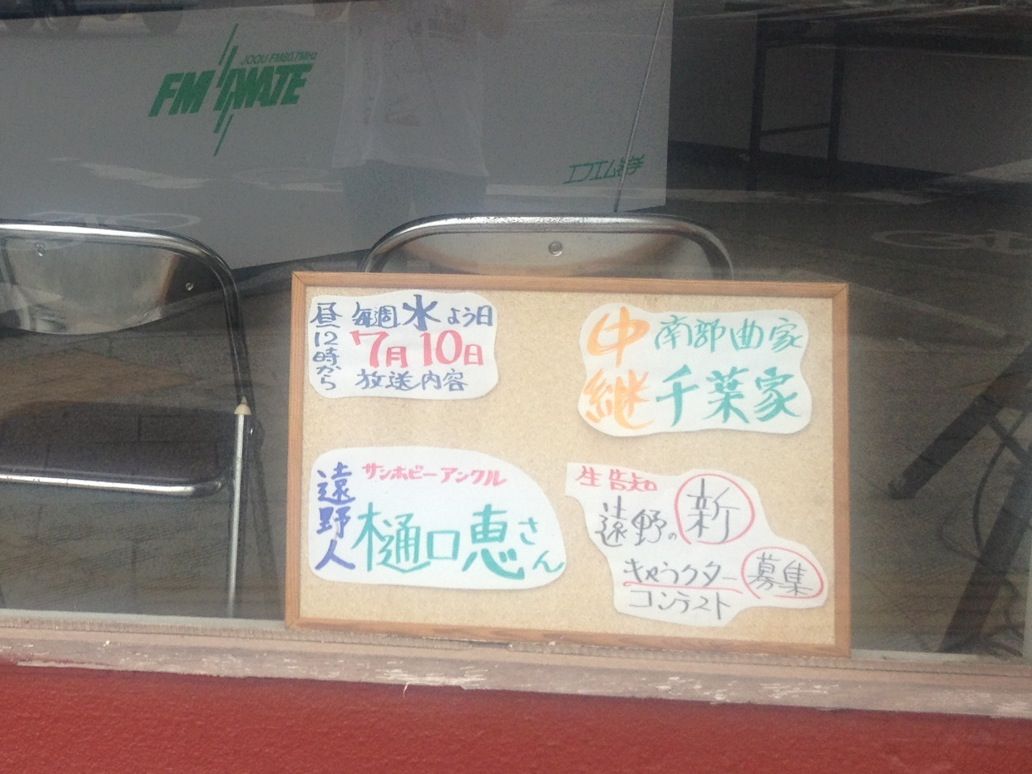 JOQU FM80.7MHz
FM IWATE
エフエム岩手
毎週水よう日
昼12時から
7月10日
放送内容
中継
南部曲家
千葉家
遠野人
サンホピーアンクル
樋口恵さん
生告知
遠野の新
キャラクター募集
コンテスト